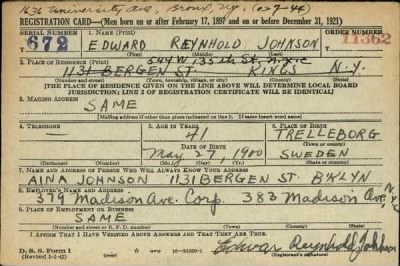 1636 University Ave., Bronx, N.Y. (
REGISTRATION CARD—(Men born on or after February 17, 1897 and on or before December 31, 1921)
SERIAL NUMBER
1. NAME (Print)
ORDER NUMBER
T 672
EDWARD REYNHOLD JOHNSON
11362
(First) (Middle) (Last)
2. PLACE OF RESIDENCE (Print)
544 W 135th St. N.Y.C.
1131 BERGEN ST. KINGS N.Y.
(Number and street) (Town, township, village, or city) (County) (State)
[THE PLACE OF RESIDENCE GIVEN ON THE LINE ABOVE WILL DETERMINE LOCAL BOARD
JURISDICTION; LINE 2 OF REGISTRATION CERTIFICATE WILL BE IDENTICAL]
3. MAILING ADDRESS
SAME
(Mailing address if other than place indicated on line 2. If same insert word same)
4. TELEPHONE
5. AGE IN YEARS
6. PLACE OF BIRTH
—
41
TRELLEBORG
DATE OF BIRTH
(Town or county)
May 27, 1900
SWEDEN
(Exchange) (Number)
(Mo.) (Day) (Yr.)
(State or country)
7. NAME AND ADDRESS OF PERSON WHO WILL ALWAYS KNOW YOUR ADDRESS
AINA JOHNSON 1131 BERGEN ST. B'KLYN
8. EMPLOYER'S NAME AND ADDRESS
379 Madison Ave. Corp. 383 Madison Ave. N.Y.C.
9. PLACE OF EMPLOYMENT OR BUSINESS
SAME
(Number and street or R. F. D. number) (Town) (County) (State)
I AFFIRM THAT I HAVE VERIFIED ABOVE ANSWERS AND THAT THEY ARE TRUE.
D. S. S. Form 1
(Revised 1-1-42) (over)
Edwar Reynhold Johnson